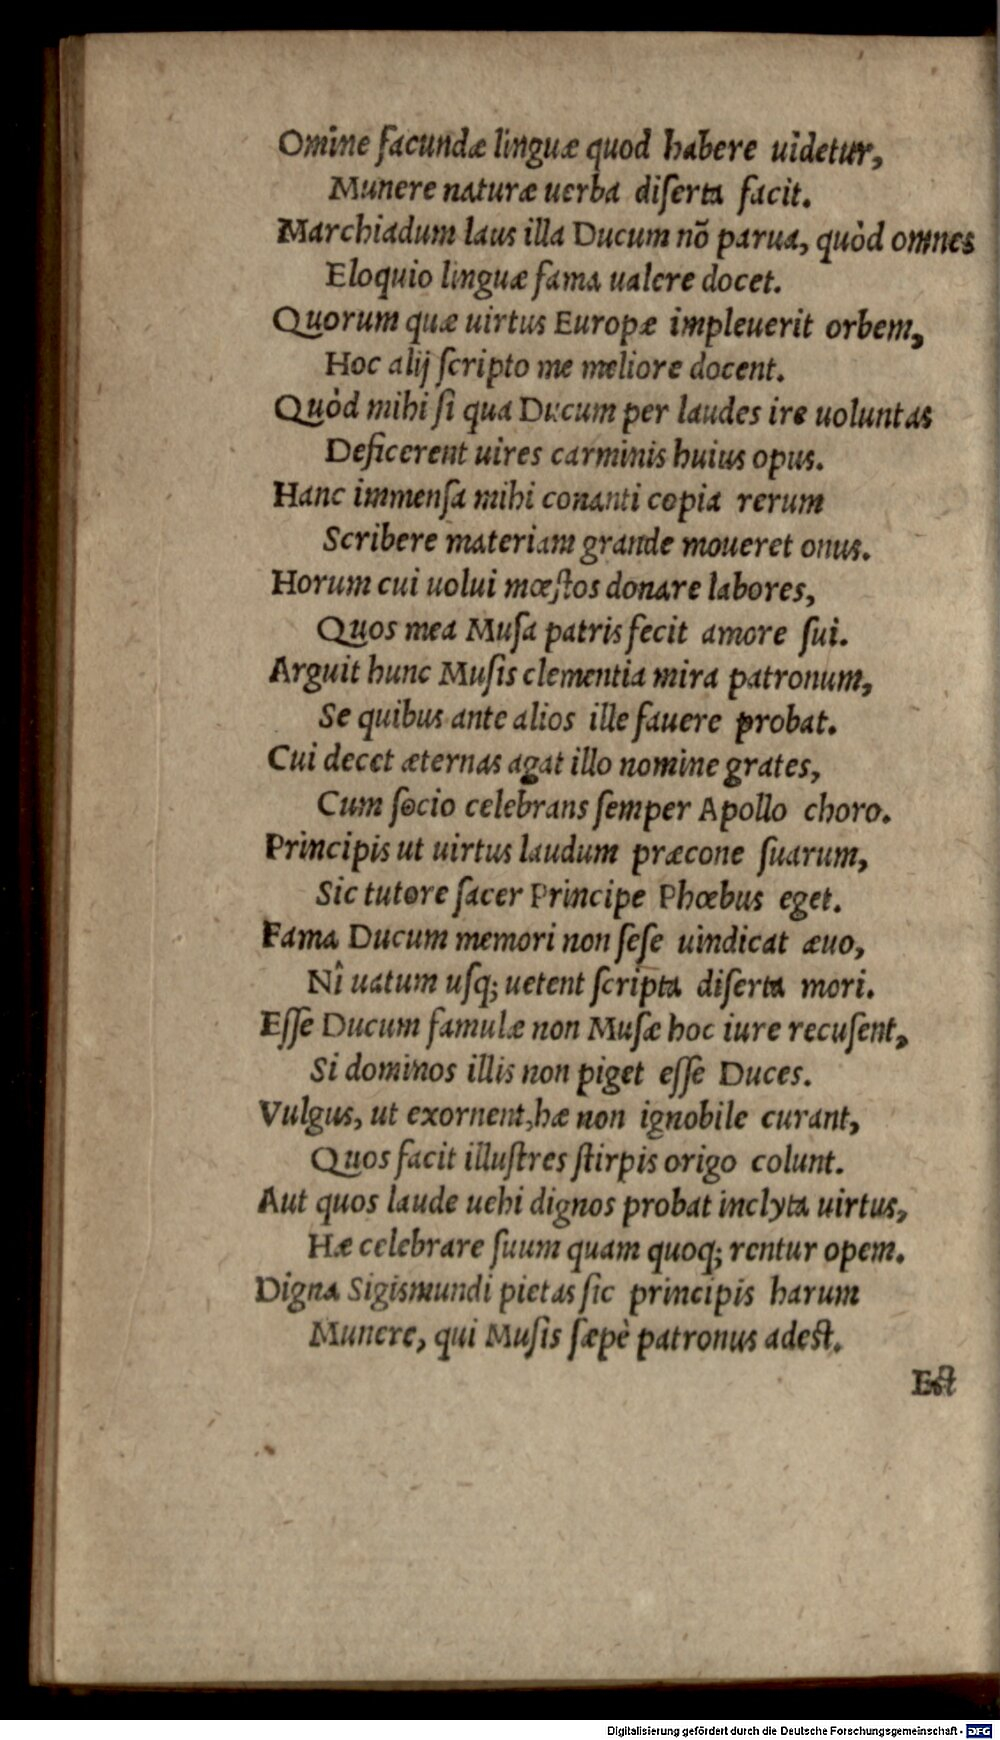 Omine facundæ linguæ quod habere uidetur,
Munere naturæ uerba diſerta facit.
Marchiadum laus illa Ducum nõ parua, quòd omnes
Eloquio linguæ fama ualere docet.
Quorum quæ uirtus Europæ impleuerit orbem,
Hoc alij ſcripto me meliore docent.
Quòd mihi ſi qua Ducum per laudes ire uoluntas
Deficerent uires carminis huius opus.
Hanc immenſa mihi conanti copia rerum
Scribere materiam grande moueret onus.
Horum cui uolui mœſtos donare labores,
Quos mea Muſa patris fecit amore ſui.
Arguit hunc Muſis clementia mira patronum,
Se quibus ante alios ille fauere probat.
Cui decet æternas agat illo nomine grates,
Cum ſocio celebrans ſemper Apollo choro.
Principis ut uirtus laudum præcone ſuarum,
Sic tutore ſacer Principe Phœbus eget.
Fama Ducum memori non ſeſe uindicat æuo,
Nî uatum uſq; uetent ſcripta diſerta mori.
Eſſe Ducum famulæ non Muſæ hoc iure recuſent,
Si dominos illis non piget eſſe Duces.
Vulgus, ut exornent, hæ non ignobile curant,
Quos facit illuſtres ſtirpis origo colunt.
Aut quos laude uehi dignos probat inclyta uirtus,
Hæ celebrare ſuum quam quoq; rentur opem.
Digna Sigismundi pietas ſic principis harum
Munere, qui Muſis ſæpè patronus adeſt.
Eſt
Digitalisierung gefördert durch die Deutsche Forschungsgemeinschaft - DFG